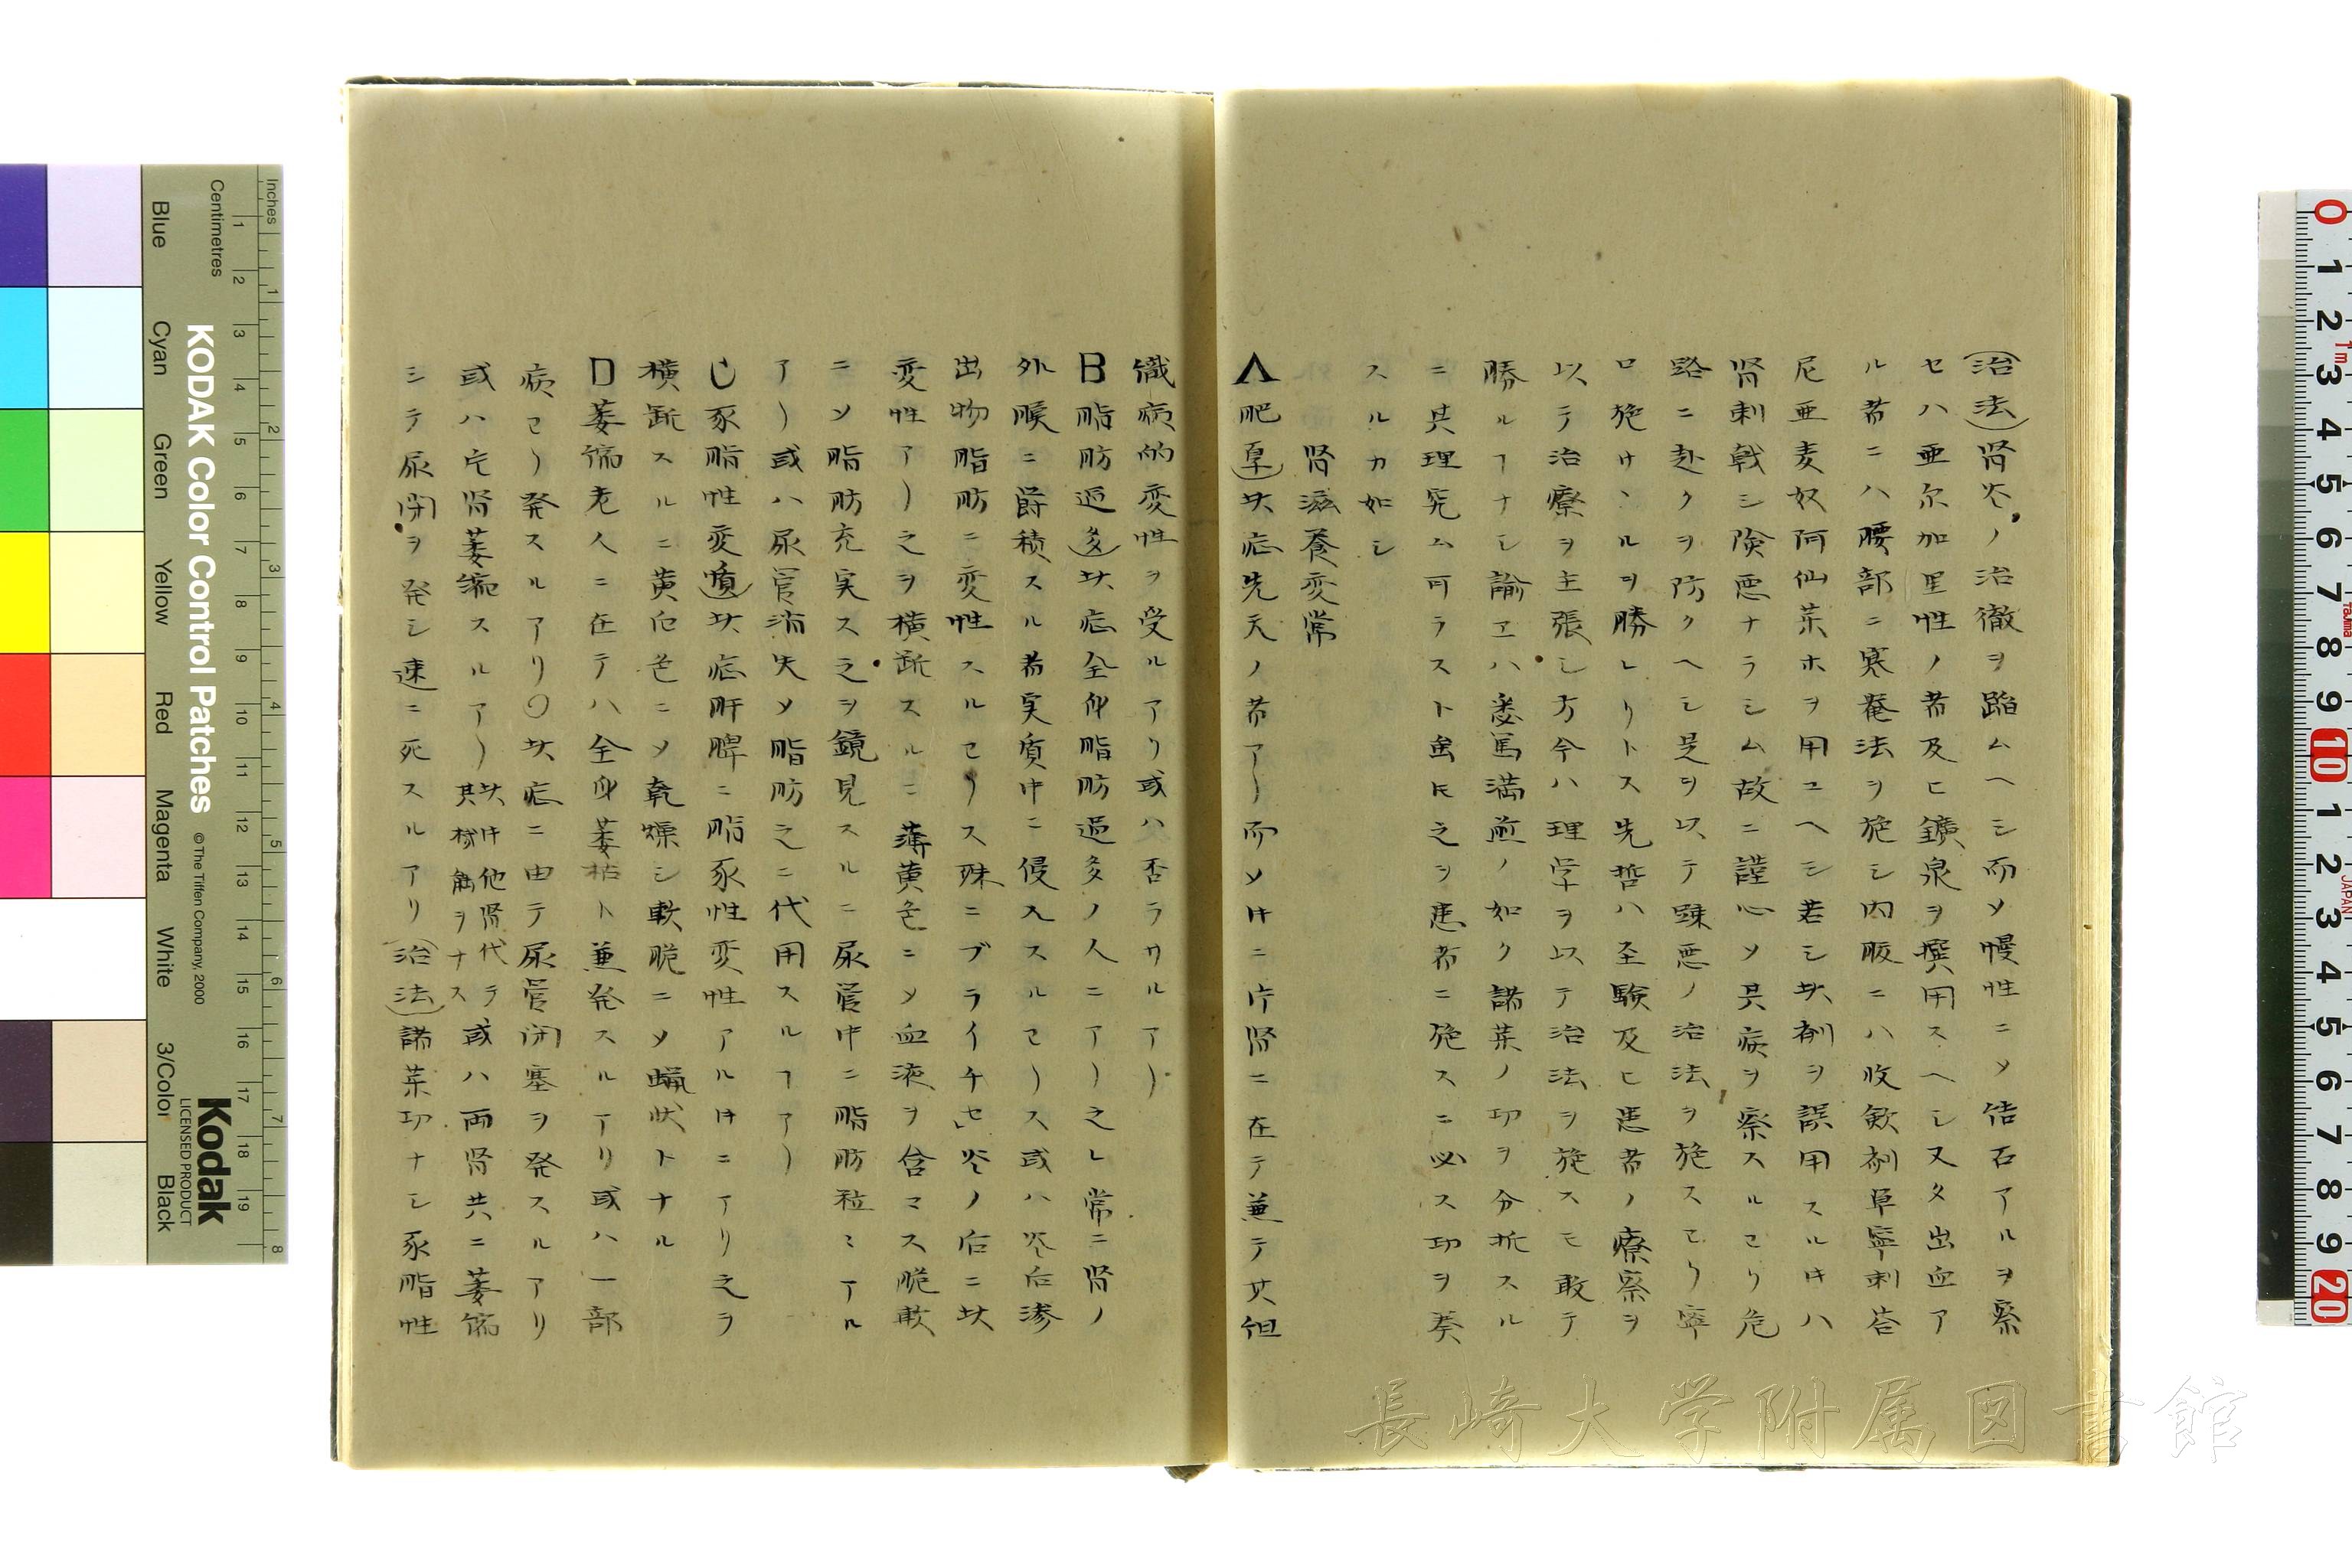 (治法)腎炎ノ治徹ヲ踏ムヘシ而〆慢性ニ〆結石アルヲ察
セハ亜尔加里性ノ者及ヒ鑛泉ヲ撰用スヘシ又タ出血ア
ル者ニハ腰部ニ寒菴法ヲ施シ内服ニハ收歛剤単寧刺荅
尼亜麦奴阿仙茱ホヲ用ユヘシ若シ此剤ヲ誤用スル时ハ
腎刺戟シ険悪ナラシム故ニ謹心〆其病ヲ察スルヿリ危
路ニ赴クヲ防クヘシ是ヲ以テ疎悪ノ治法ヲ施スヿリ寧
ロ施サヽルヲ勝レリトス先哲ハ至験及ヒ患者ノ療察ヲ
以テ治療ヲ主張シ方今ハ理学ヲ以テ治法ヲ施スモ敢テ
勝ルヿナシ諭エハ悉馬満煎ノ如ク諸茱ノ功ヲ分析スル
ニ其理究ム可ラスト虽𪜈之ヲ患者ニ施スニ必ス功ヲ奏
スルカ如シ
腎滋養変常
A肥厚)此症先天ノ者アリ而〆时ニ片腎ニ在テ兼テ其但
織病的変性ヲ受ルアリ或ハ否ラサルアリ
B脂肪過多)此症全身脂肪過多ノ人ニアリ之レ常ニ腎ノ
外膜ニ欝積スル者実質中ニ侵入スルヿリス或ハ炎后滲
出物脂肪ニ変性スルヿリス殊ニブライチセ」炎ノ后ニ此
変性アリ之ヲ横断スルニ薄黄色ニ〆血液ヲ含マス脆軟
ニ〆脂肪充実ス之ヲ鏡見スルニ尿管中ニ脂肪粒〻アル
アリ或ハ尿管消失〆脂肪之ニ代用スルヿアリ
C豕脂性変質)此症肝脾ニ脂豕性変性アル时ニアリ之ヲ
横断スルニ黄白色ニ〆乾燥シ軟脆ニ〆蝋状トナル
D萎縮老人ニ在テハ全身萎枯ト兼発スルアリ或ハ一部
病ヿリ発スルアリ〇此症ニ由テ尿管閉塞ヲ発スルアリ
或ハ片腎萎縮スルアリ此时他腎代テ其機能ヲナス或ハ両腎共ニ萎縮
シテ尿閉ヲ発シ速ニ死スルアリ(治法)諸茱功ナシ豕脂性
KODAK Color Control Patches
© The Tiffen Company, 2000
Kodak
LICENSED PRODUCT
Inches
Centimetres
Blue
Cyan
Green
Yellow
Red
Magenta
White
3/Color
Black
長崎大学附属図書館